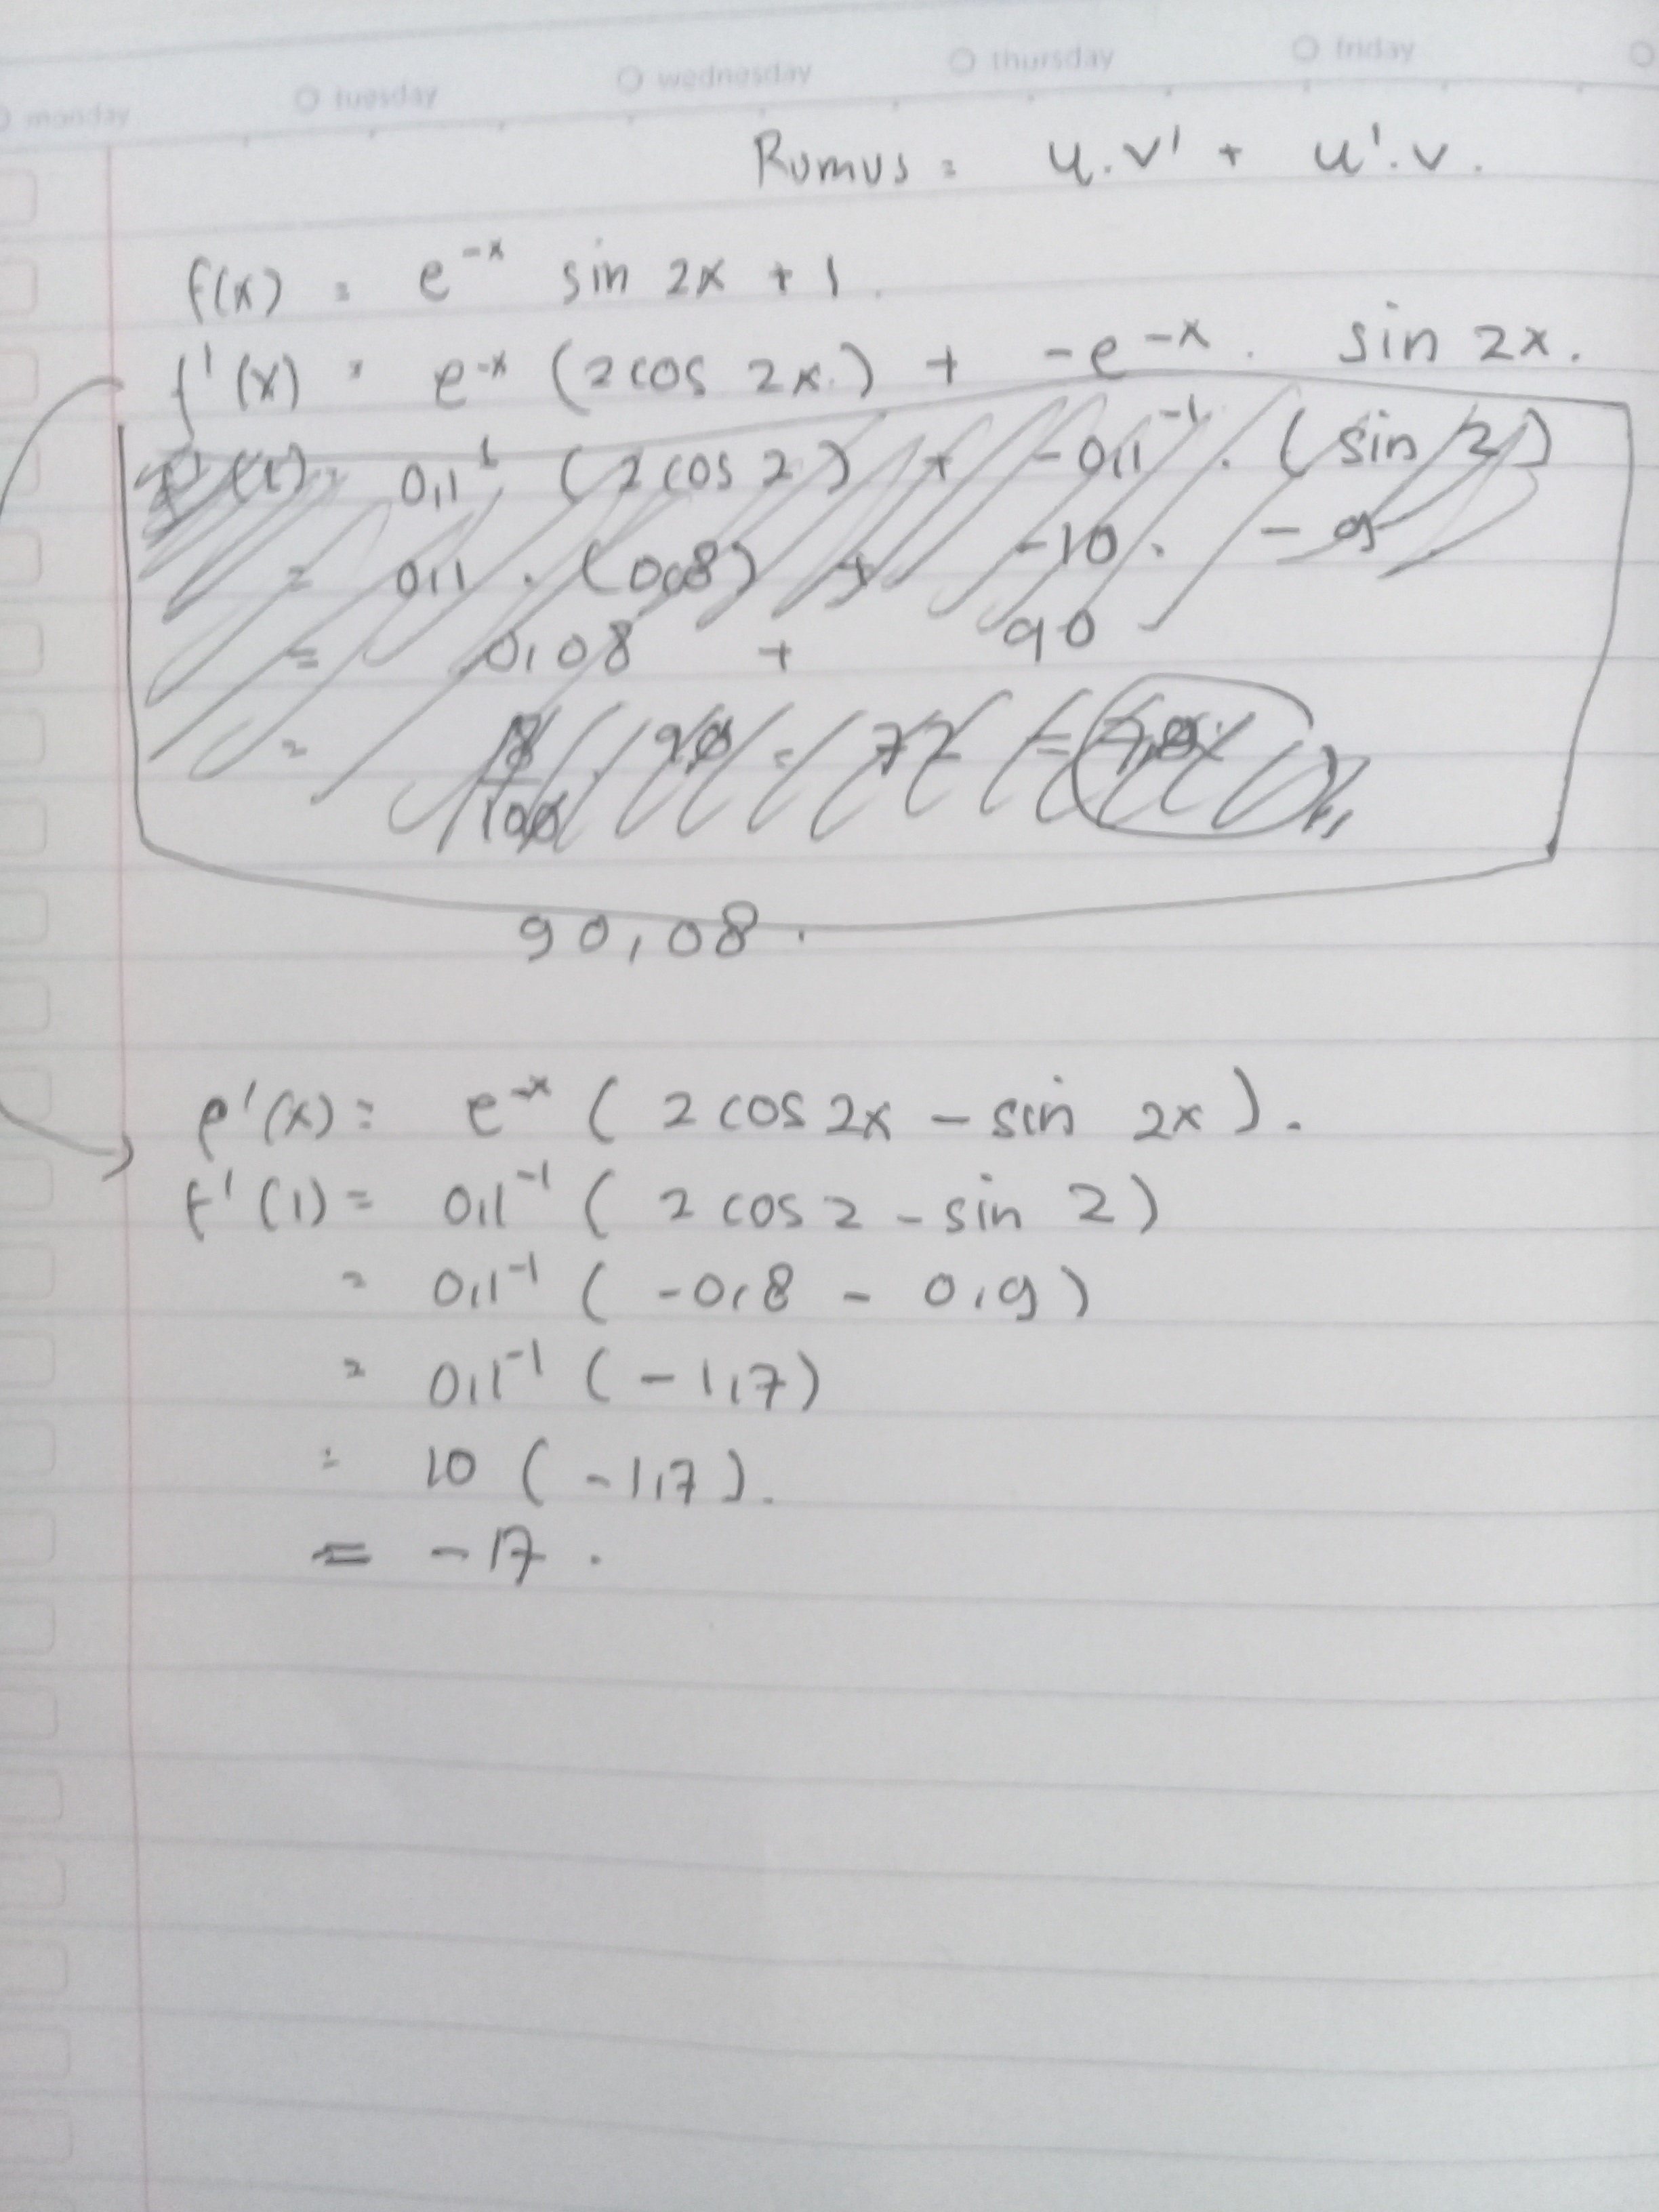 monday tuesday wednesday thursday friday
Rumus = u.v' + u'.v.
f(x) = e^-x sin 2x + 1.
f'(x) = e^-x (2 cos 2x.) + -e^-x . sin 2x.
(1) = 0,1^1 (2 cos 2) + -0,1^-1 . (sin 2)
= 0,1 . (0,8) + -10 .
= 0,08 + 90
90,08 .
f'(x) = e^-x ( 2 cos 2x - sin 2x ).
f'(1) = 0,1^-1 ( 2 cos 2 - sin 2 )
= 0,1^-1 ( -0,8 - 0,9 )
= 0,1^-1 ( -1,7 )
= 10 ( -1,7 ).
= -17 .